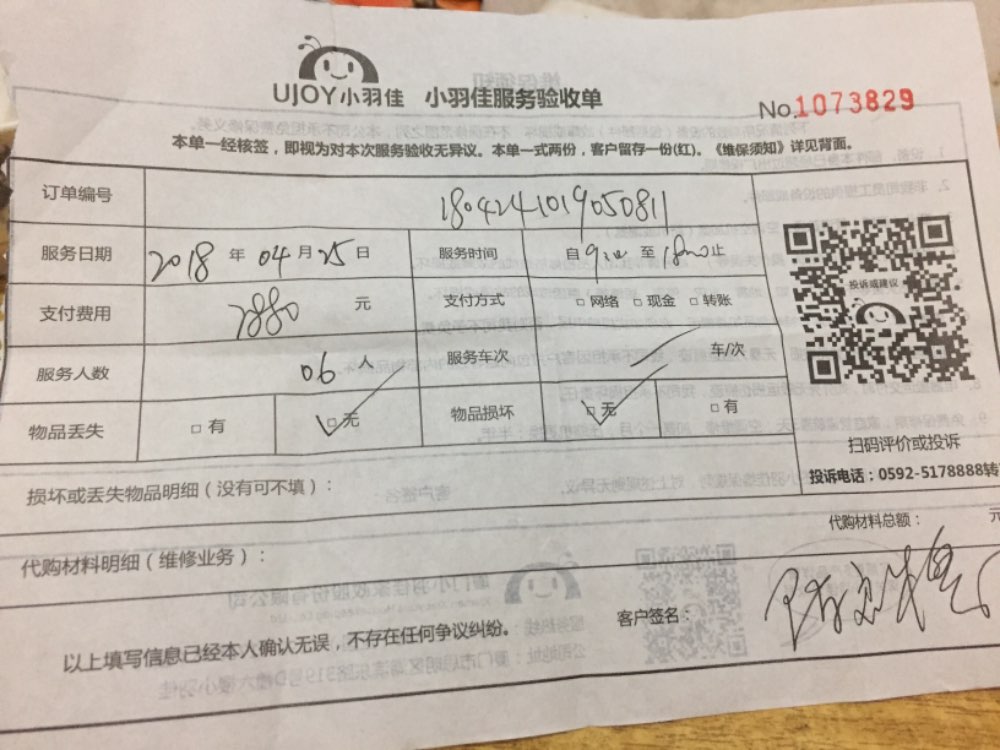 UJOY小羽佳 小羽佳服务验收单
No.1073829
本单一经核签，即视为对本次服务验收无异议。本单一式两份，客户留存一份(红)。《维保须知》详见背面。
订单编号 1804241019050811
服务日期 2018 年 04 月 25 日 服务时间 自 9:00 至 18:00 止
投诉或建议
支付费用 2880 元 支付方式 □网络 □现金 □转账
服务人数 06 人 服务车次 车/次
物品丢失 □有 □无 物品损坏 □无 □有
扫码评价或投诉
损坏或丢失物品明细（没有可不填）：
投诉电话：0592-5178888转
代购材料总额： 元
代购材料明细（维修业务）：
客户签名：
以上填写信息已经本人确认无误，不存在任何争议纠纷。